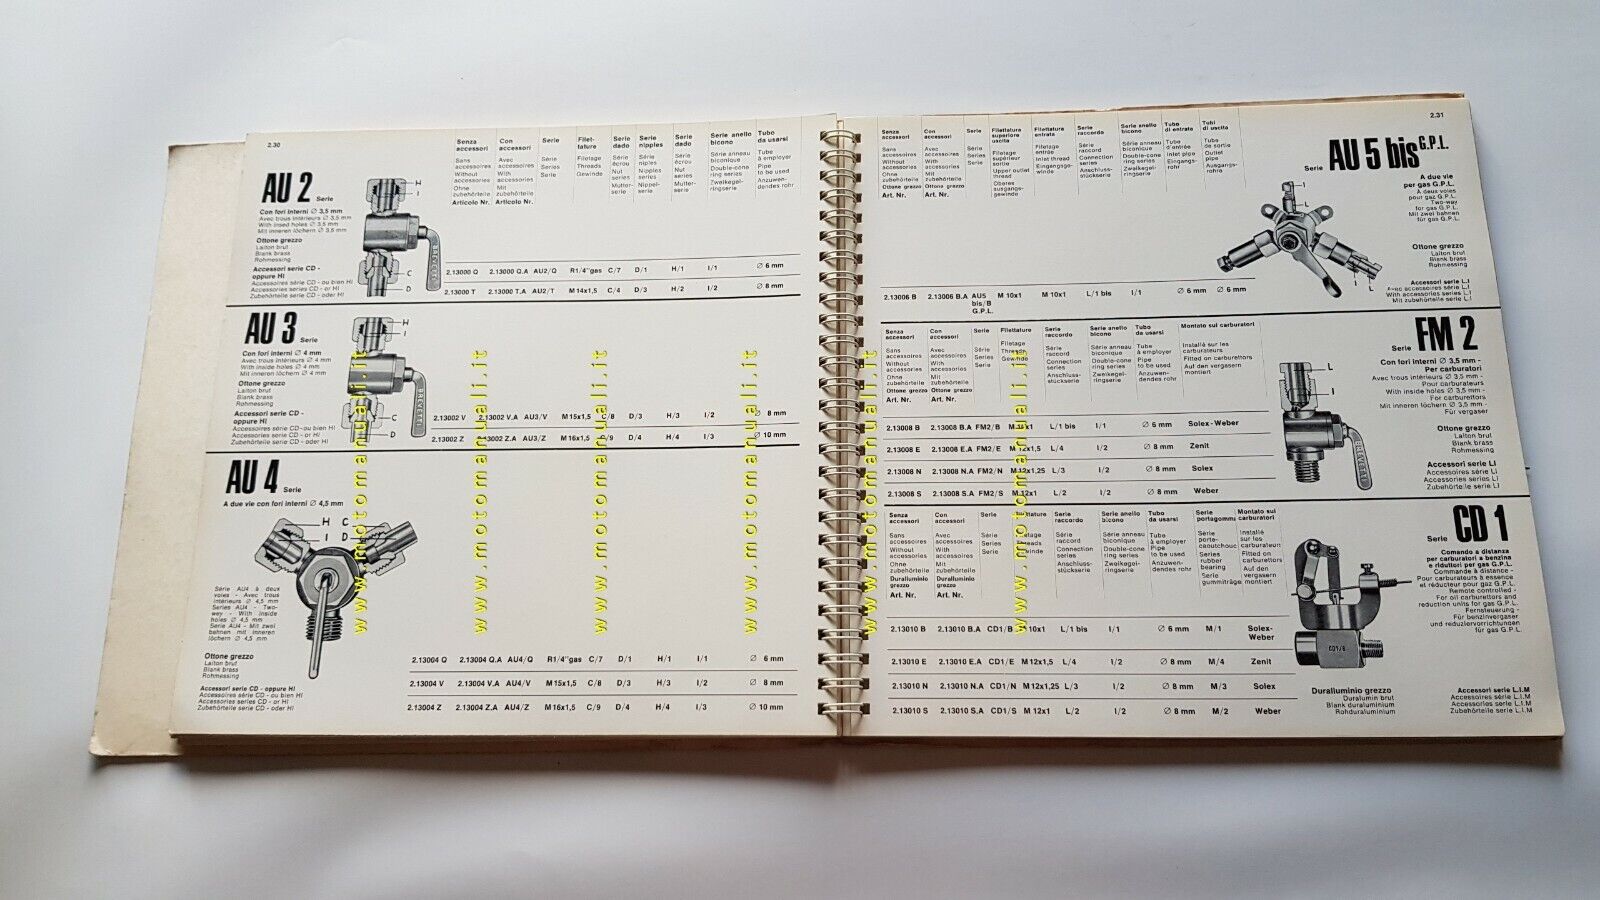 2.30
AU 2 Serie
Con fori interni ∅ 3,5 mm
Avec trous intérieurs ∅ 3,5 mm
With insed holes ∅ 3,5 mm
Mit inneren löchern ∅ 3,5 mm
Ottone grezzo
Laiton brut
Blank brass
Rohmessing
Accessori serie CD -
oppure HI
Accessoires série CD - ou bien HI
Accessories series CD - or HI
Zubehörteile serie CD - oder HI
H
I
C
D
Senza accessori
Sans accessoires
Without accessories
Ohne zubehörteile
Articolo Nr.
Con accessori
Avec accessoires
With accessories
Mit zubehörteile
Articolo Nr.
Serie
Série
Series
Serie
Filet-
tature
Filetage
Threads
Gewinde
Serie dado
Série écrou
Nut series
Mutter-
serie
Serie nipples
Série niples
Nipples series
Nippel-
serie
Serie dado
Série écrou
Nut series
Mutter-
serie
Serie anello bicono
Série anneau biconique
Double-cone ring series
Zweikegel-
ringserie
Tubo da usarsi
Tube à employer
Pipe to be used
Anzuwen-
dendes rohr
2.13000 Q 2.13000 Q.A AU2/Q R1/4"gas C/7 D/1 H/1 I/1 ∅ 6 mm
2.13000 T 2.13000 T.A AU2/T M14x1,5 C/4 D/3 H/2 I/2 ∅ 8 mm
AU 3 Serie
Con fori interni ∅ 4 mm
Avec trous intérieurs ∅ 4 mm
With inside holes ∅ 4 mm
Mit inneren löchern ∅ 4 mm
Ottone grezzo
Laiton brut
Blank brass
Rohmessing
Accessori serie CD -
oppure HI
Accessoires série CD - ou bien HI
Accessories series CD - or HI
Zubehörteile serie CD - oder HI
H
I
C
D
2.13002 V 2.13002 V.A AU3/V M15x1,5 C/8 D/3 H/3 I/2 ∅ 8 mm
2.13002 Z 2.13002 Z.A AU3/Z M16x1,5 C/9 D/4 H/4 I/3 ∅ 10 mm
AU 4 Serie
A due vie con fori interni ∅ 4,5 mm
H C
I D
Série AU4 à deux
voies - Avec trous
intérieurs ∅ 4,5 mm
Series AU4 - Two-
way - With inside
holes ∅ 4,5 mm
Serie AU4 - Mit zwei
bahnen mit inneren
löchern ∅ 4,5 mm
Ottone grezzo
Laiton brut
Blank brass
Rohmessing
Accessori serie CD - oppure HI
Accessoires série CD - ou bien HI
Accessories series CD - or HI
Zubehörteile serie CD - oder HI
2.13004 Q 2.13004 Q.A AU4/Q R1/4"gas C/7 D/1 H/1 I/1 ∅ 6 mm
2.13004 V 2.13004 V.A AU4/V M15x1,5 C/8 D/3 H/3 I/2 ∅ 8 mm
2.13004 Z 2.13004 Z.A AU4/Z M16x1,5 C/9 D/4 H/4 I/3 ∅ 10 mm
www.motomanuali.it
www.motomanuali.it
www.motomanuali.it
www.motomanuali.it
www.motomanuali.it
www.motomanuali.it
2.31
Serie AU 5 bis G.P.L.
A due vie
per gas G.P.L.
A deux voies
pour gaz G.P.L.
Two-way
for gas G.P.L.
Mit zwei bahnen
für gas G.P.L.
Ottone grezzo
Laiton brut
Blank brass
Rohmessing
Accessori serie L.I
Avec accessoires série L.I
With accessories series L.I
Mit zubehörteile serie L.I
Senza accessori
Sans accessoires
Without accessories
Ohne zubehörteile
Ottone grezzo
Art. Nr.
Con accessori
Avec accessoires
With accessories
Mit zubehörteile
Ottone grezzo
Art. Nr.
Serie
Série
Series
Serie
Filettatura superiore uscita
Filetage supérieur sortie
Upper outlet thread
Oberes ausgangs-
gewinde
Filettatura entrata
Filetage entrée
Inlet thread
Eingangs-
gewinde
Serie raccordo
Série raccord
Connection series
Anschluss-
stückserie
Serie anello bicono
Série anneau biconique
Double-cone ring series
Zweikegel-
ringserie
Tubo di entrata
Tube d'entrée
Inlet pipe
Eingangs-
rohr
Tubi di uscita
Tube de sortie
Outlet pipe
Ausgangs-
rohr
2.13006 B 2.13006 B.A AU5 bis/B G.P.L. M 10x1 M 10x1 L/1 bis I/1 ∅ 6 mm ∅ 6 mm
Serie FM 2
Con fori interni ∅ 3,5 mm -
Per carburatori
Avec trous intérieurs ∅ 3,5 mm -
Pour carburateurs
With inside holes ∅ 3,5 mm -
For carburettors
Mit inneren löchern ∅ 3,5 mm -
Für vergaser
Ottone grezzo
Laiton brut
Blank brass
Rohmessing
Accessori serie LI
Accessoires série LI
Accessories series LI
Zubehörteile serie LI
L
I
Montato sui carburatori
Installé sur les carburateurs
Fitted on carburettors
Auf den vergasern montiert
2.13008 B 2.13008 B.A FM2/B M 10x1 L/1 bis I/1 ∅ 6 mm Solex-Weber
2.13008 E 2.13008 E.A FM2/E M 12x1,5 L/4 I/2 ∅ 8 mm Zenit
2.13008 N 2.13008 N.A FM2/N M 12x1,25 L/3 I/2 ∅ 8 mm Solex
2.13008 S 2.13008 S.A FM2/S M 12x1 L/2 I/2 ∅ 8 mm Weber
Serie CD 1
Comando a distanza
per carburatori a benzina
e riduttori per gaz G.P.L.
Commande à distance -
Pour carburateurs à essence
et réducteur pour gaz G.P.L.
Remote controlled -
For oil carburettors and
reduction units for gas G.P.L.
Fernsteuerung -
Für benzinvergaser
und reduziervorrichtungen
für gas G.P.L.
CD1/B
Duralluminio grezzo
Duralumin brut
Blank duraluminium
Rohduraluminium
Accessori serie L.I.M
Accessoires série L.I.M
Accessories serie L.I.M
Zubehörteile serie L.I.M
2.13010 B 2.13010 B.A CD1/B M 10x1 L/1 bis I/1 ∅ 6 mm M/1 Solex-Weber
2.13010 E 2.13010 E.A CD1/E M 12x1,5 L/4 I/2 ∅ 8 mm M/4 Zenit
2.13010 N 2.13010 N.A CD1/N M 12x1,25 L/3 I/2 ∅ 8 mm M/3 Solex
2.13010 S 2.13010 S.A CD1/S M 12x1 L/2 I/2 ∅ 8 mm M/2 Weber